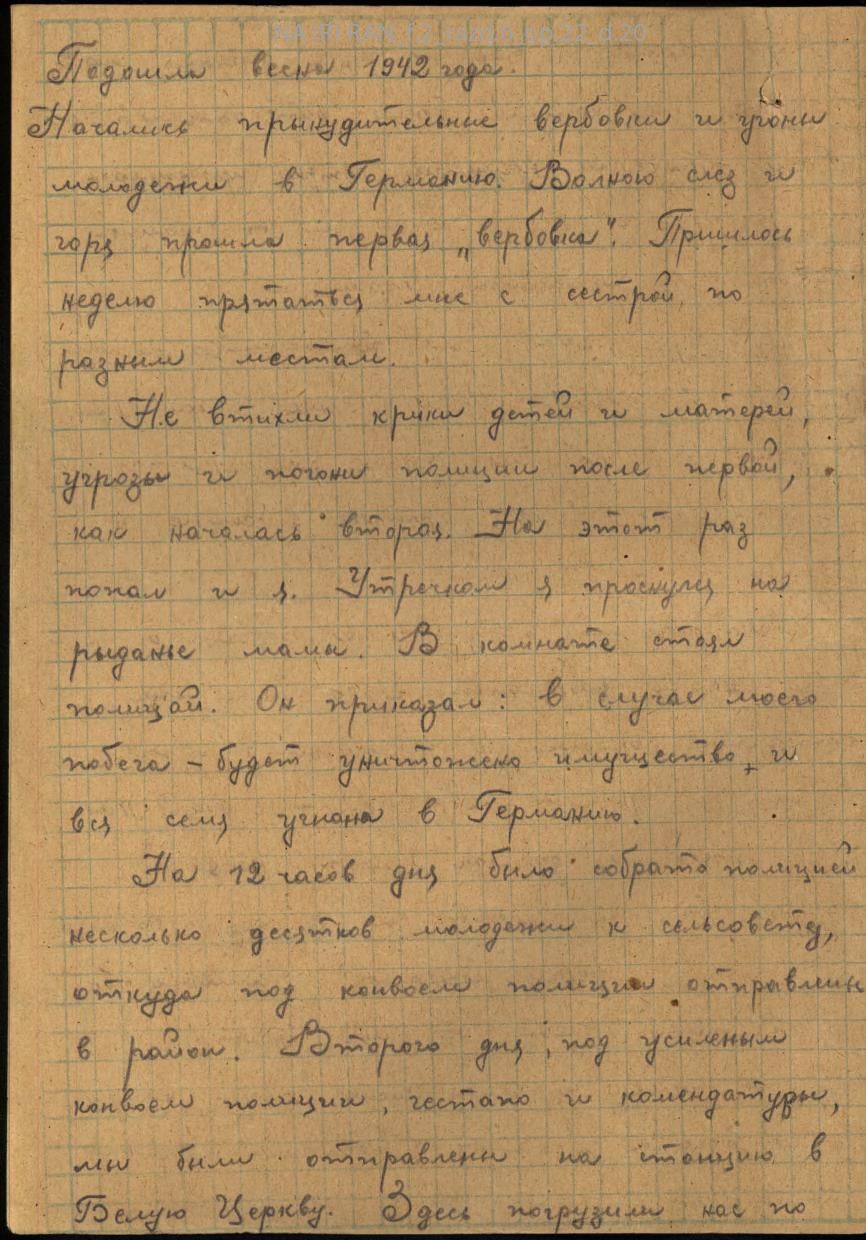 NA IRI RAN f.2 razd.6 op.22 d.20
Подошла весна 1942 года.
Начались прынудительные вербовки и угоны
молодежи в Германию. Волною слез и
горя прошла первая „вербовка". Пришлось
неделю прятаться мне с сестрой по
разным местам.
Не втихли крики детей и матерей,
угрозы и погони полиции после первой,
как началась вторая. На этот раз
попал и я. Утречком я проснулся на
рыданье мамы. В комнате стоял
полицай. Он приказал: в случае моего
побега – будет уничтожено имущество и
вся семя угнана в Германию.
На 12 часов дня было собрато полицией
несколько десятков молодежи к сельсовету,
откуда под конвоем полиции отправлены
в район. Второго дня, под усиленым
конвоем полиции, гестапо и комендатуры,
мы были отправлены на станцию в
Белую Церкву. Здесь погрузили нас по